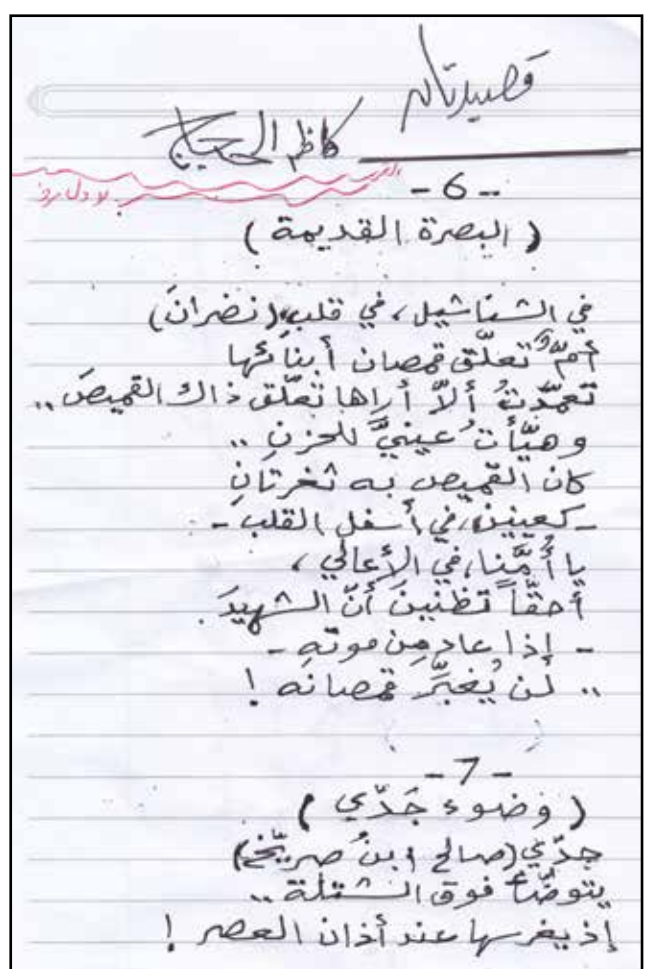 قصيدتان
كاظم الحجاج
- 6 -
( البصرة القديمة )
في الشناشيل ، في قلب ( نضرانَ )
أمٌّ تُعلّق قمصان أبنائها
تعمّدتُ ألاّ أراها تعلّق ذاك القميصَ ..
وهيّأتُ عينيَّ للحزنِ ..
كان القميص به ثغرتانِ
- كعينين ، في أسفل القلب -
يا أُمَّنا ، في الأعالي ،
أحقّاً تظنينَ أنّ الشهيدَ
- إذا عاد من موتهِ -
.. لن يُغيِّرَ قمصانه !
- 7 -
( وضوء جَدّي )
جدّي ( صالح ابنُ صريّخ )
يتوضّأ فوق الشتلة ..
إذ يغرسها عند أذان العصر !